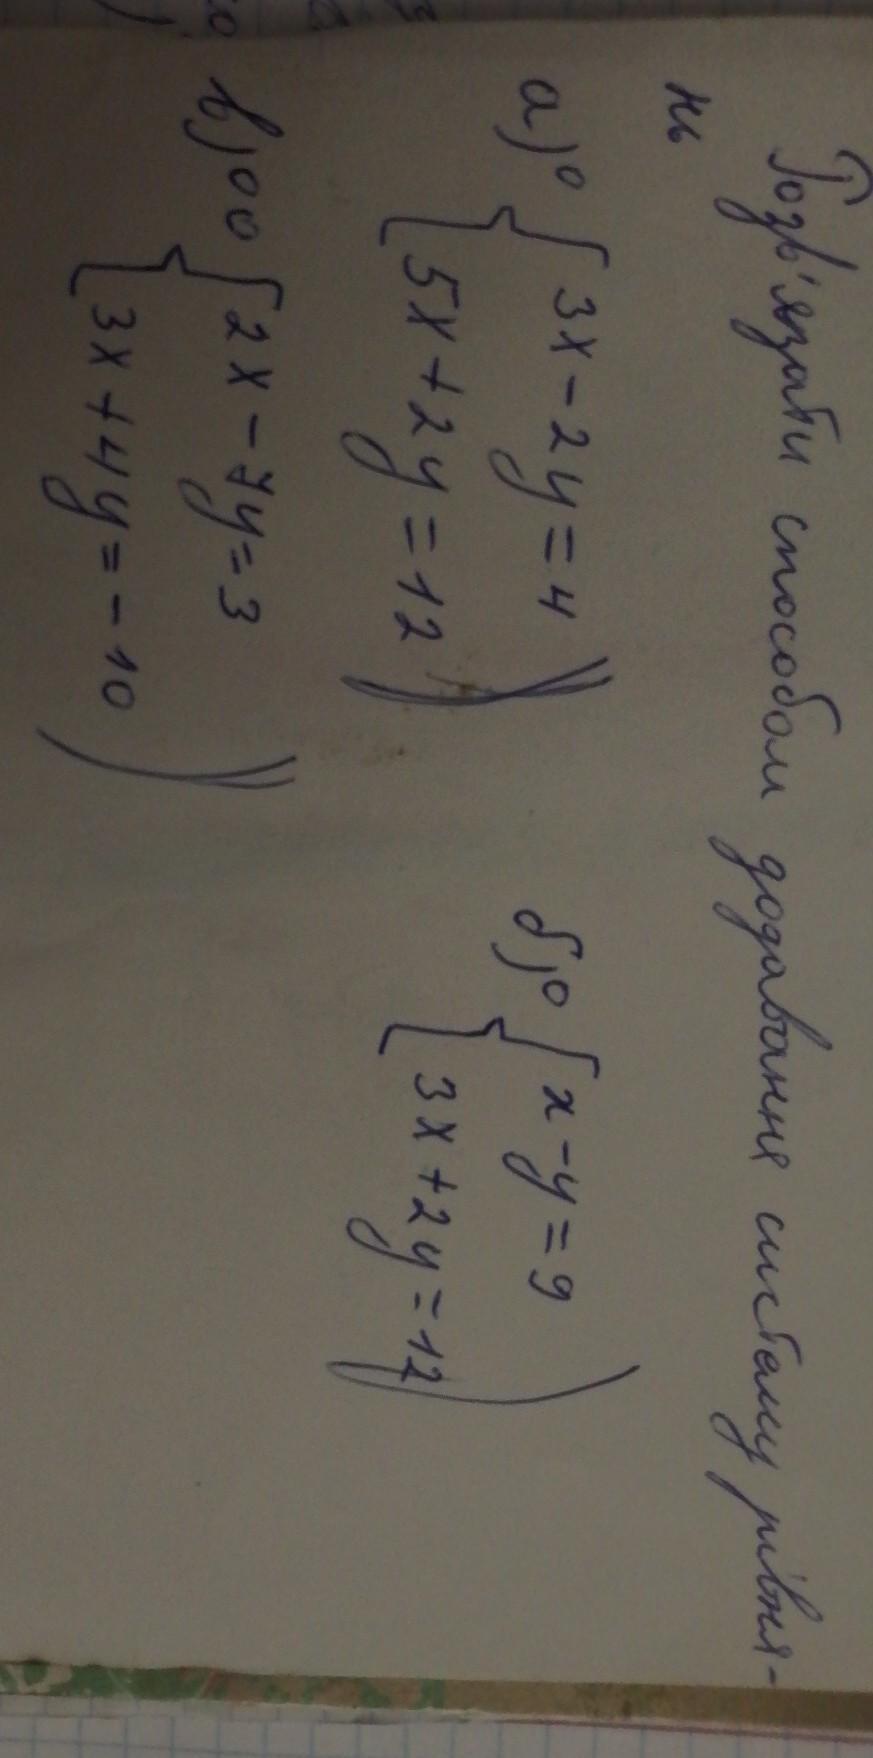 Розв'язати способом додавання систему рівня-
нь
а)° { 3x - 2y = 4
5x + 2y = 12
б)° { x - y = 9
3x + 2y = 12
в)°° { 2x - 7y = 3
3x + 4y = -10